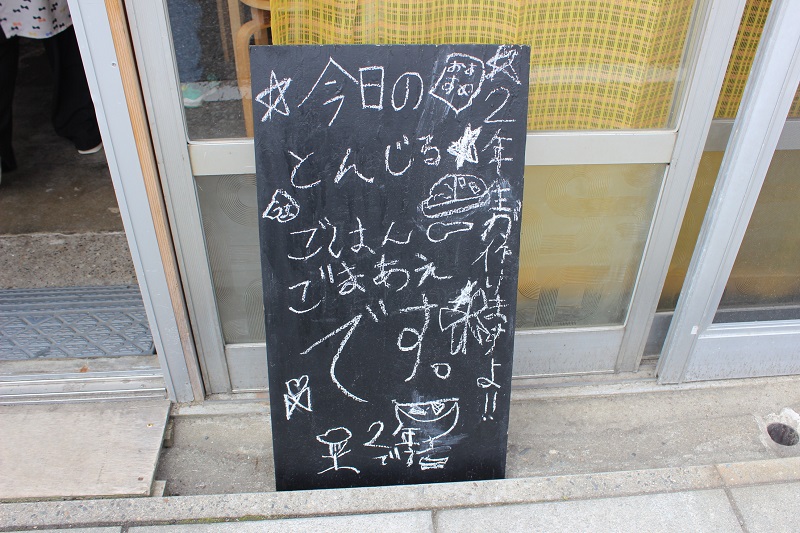 今日の
おすすめ
とんじる
ごはん
ごまあえ
です。
2年生が作りますよ!!
2年
です